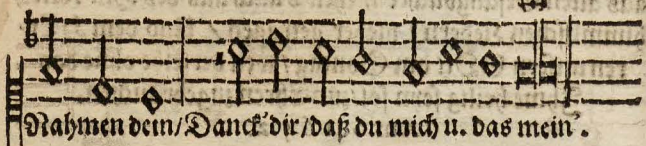 Nahmen dein/Danck' dir/daß du mich u. das mein'.